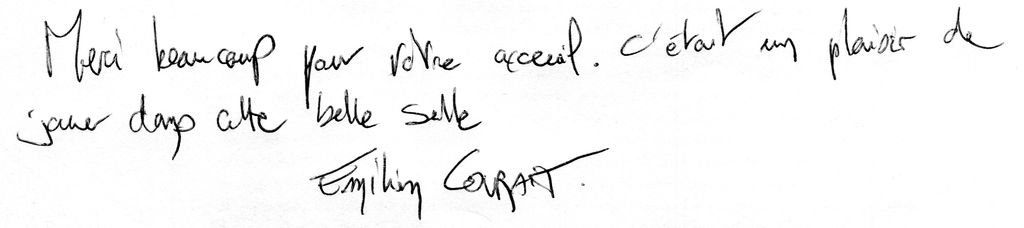 Merci beaucoup pour votre acceuil. c'était un plaisir de
jouer dans cette belle salle
Emilien COURAIT.